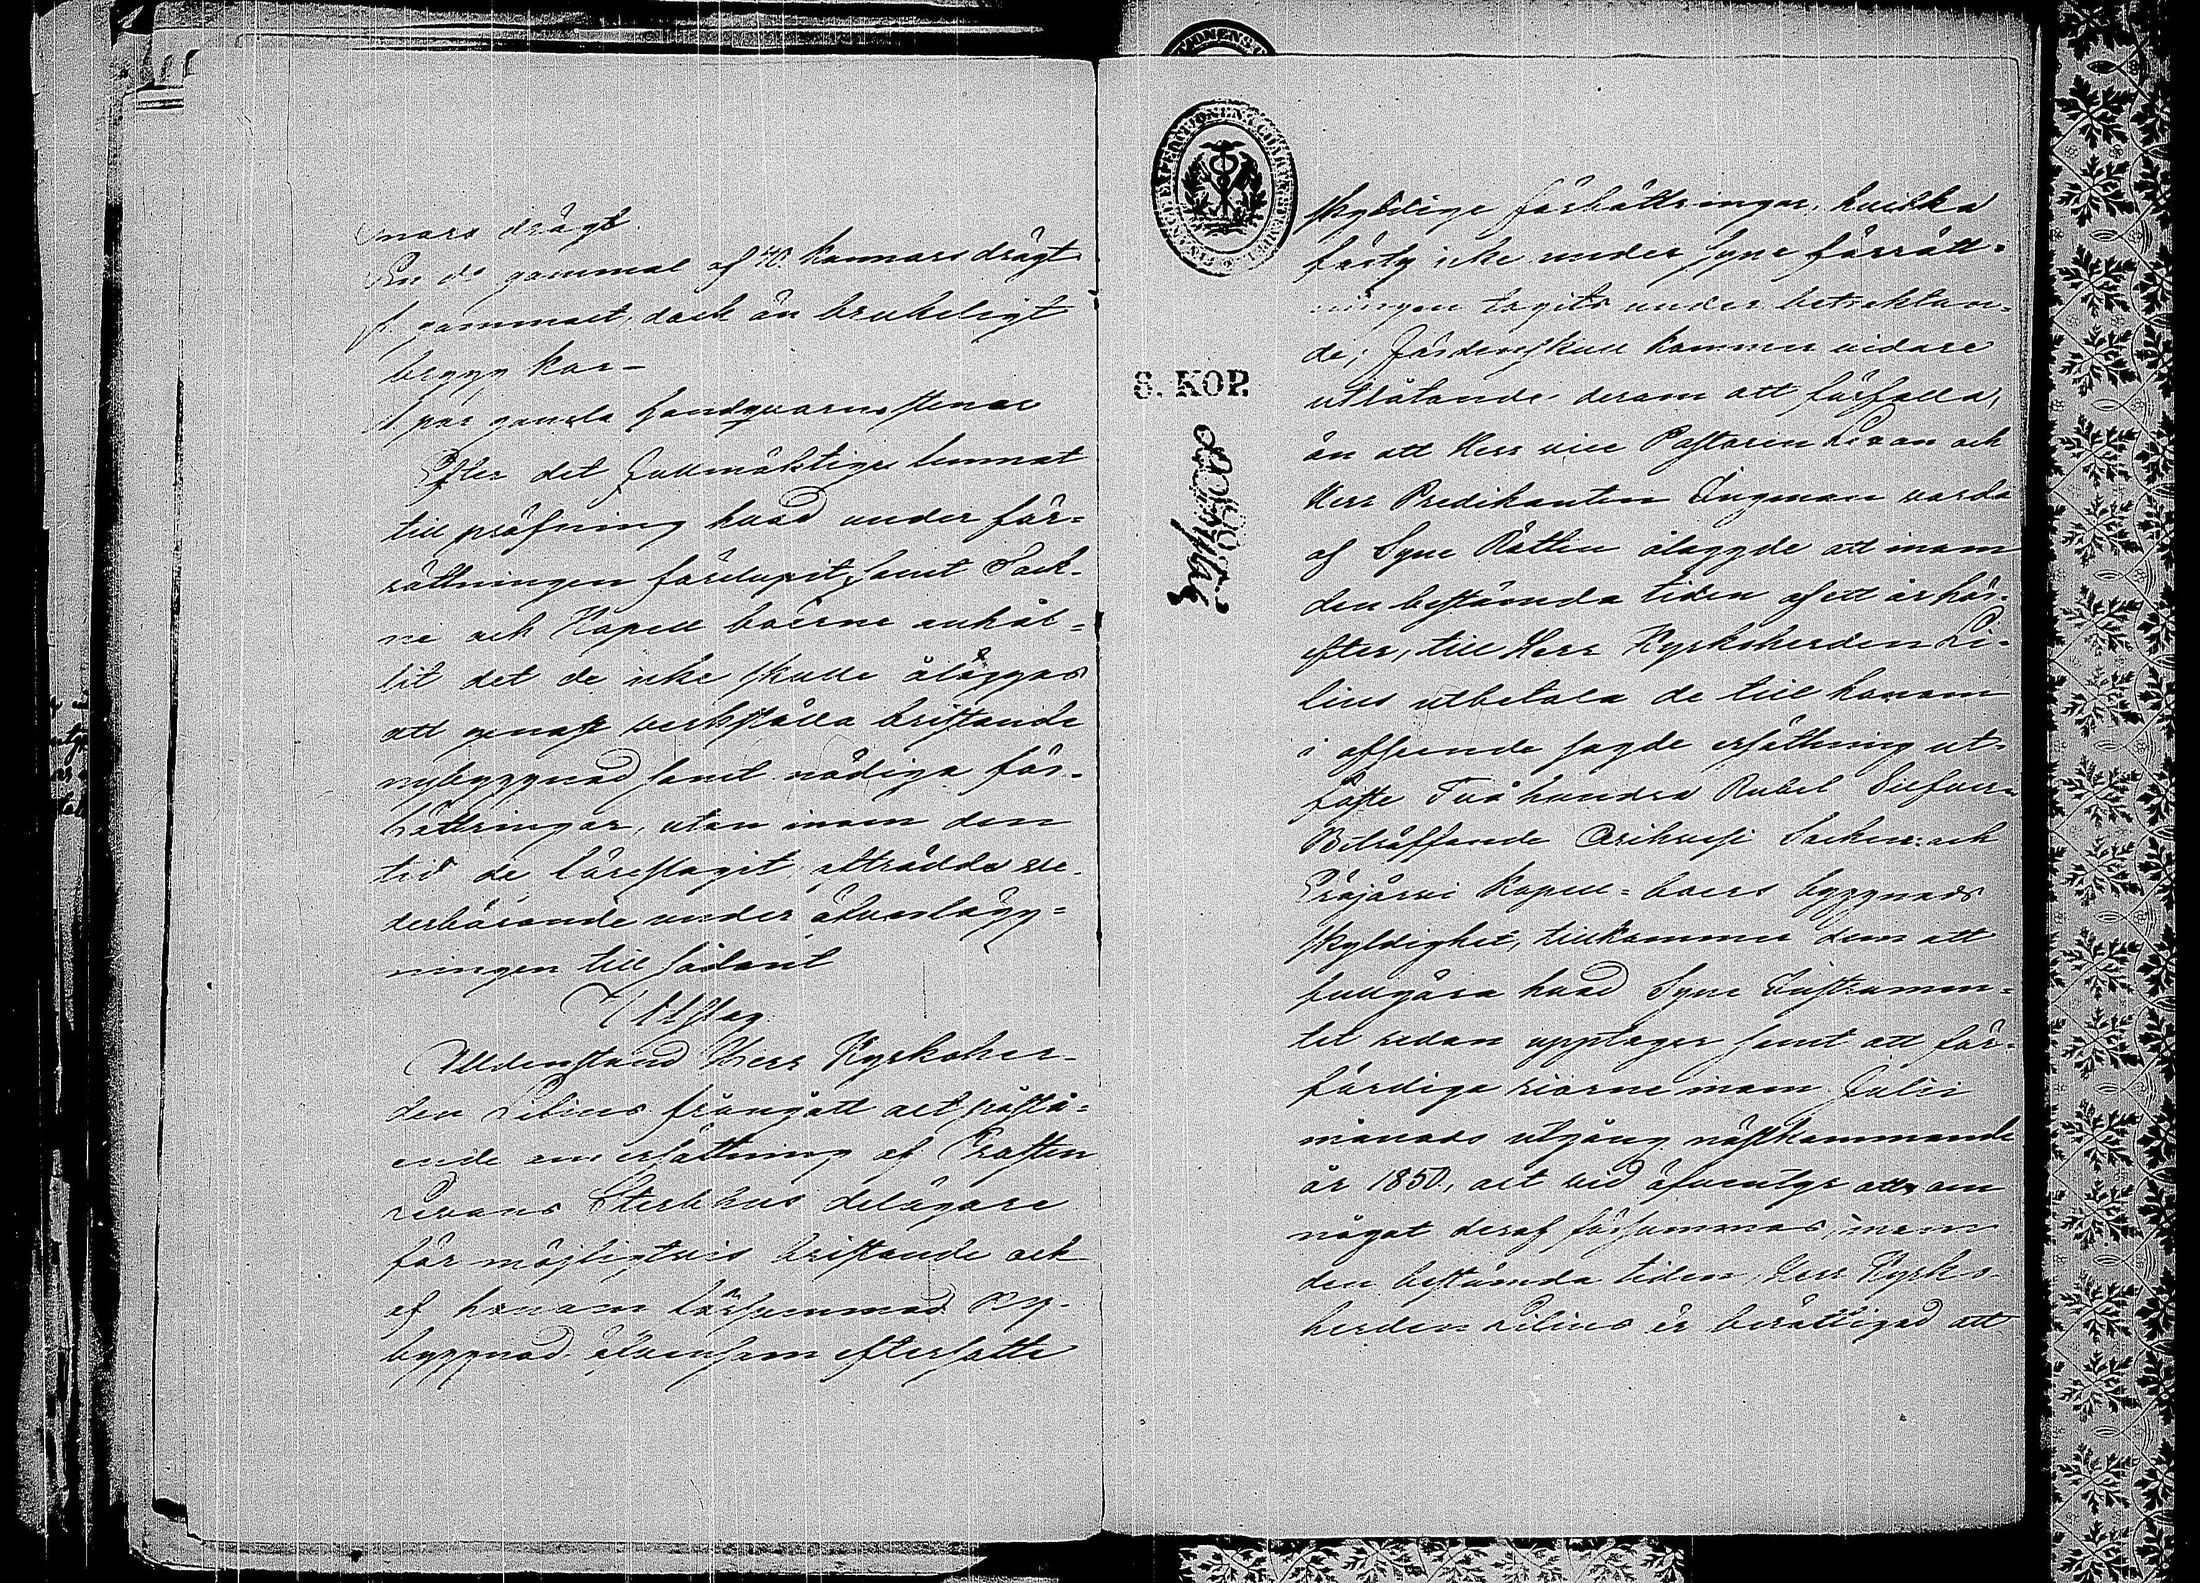 nars drägt.
En d:o gammal af 40. kannars drägt
gammalt, dock än brukeligt
brygg kar—
1 par gamla handqvarns stenar
Efter det Fullmäktige lemnat
till pröfning hvad under för=
rättningen förelupit, samt Sock-
ne och Kapell boerne anhål=
lit det de icke skulle åläggas
att genast verkställa bristande
nybyggnad samt nödiga för-
bättringar, utan inom den
tid de föreslagit, afträdde ve-
derbörande under öfverlägg=
ningen till sådant
Utslag
Alldenstund Herr Kyrkoher-
den Lilius frångått allt påstå=
ende om ersättning af Prosten
Levans Sterbhus delägare
för möjligtvis bristande och
af honom försummad ny-
byggnad älvensom eftersatte
skyldige förbättringar, hvilka
förty icke under Syne förrätt=
ningen tagits under betraktan=
de; Fördenskull kommer vidare
utlåtande derom att förfalla,
än att Herr vice Pastorn Levan och
Herr Predikanten Ingman varda
af Syne Rätten ålaggde att inom
den bestämda tiden af ett år här-
efter, till Herr Kyrkoherden Li-
lius utbetala de till honom
i afseende sagde ersättning ut-
fäste Tvåhundra Rubel Silfver.
Beträffande Orihvesi Socken= och
Eräjärvi Kapell= boers byggnads
skyldighet, tillkommer dem att
fullgöra hvad Syne Instrumen=
tet redan upptager samt att för=
färdiga riorne inom Julii
månads utgång nästkommande
år 1850, allt vid äfventyr att, om
något deraf försummas, inom
den bestämda tiden, Herr Kyrko-
herden Lilius är berättigad att
8. KOP.